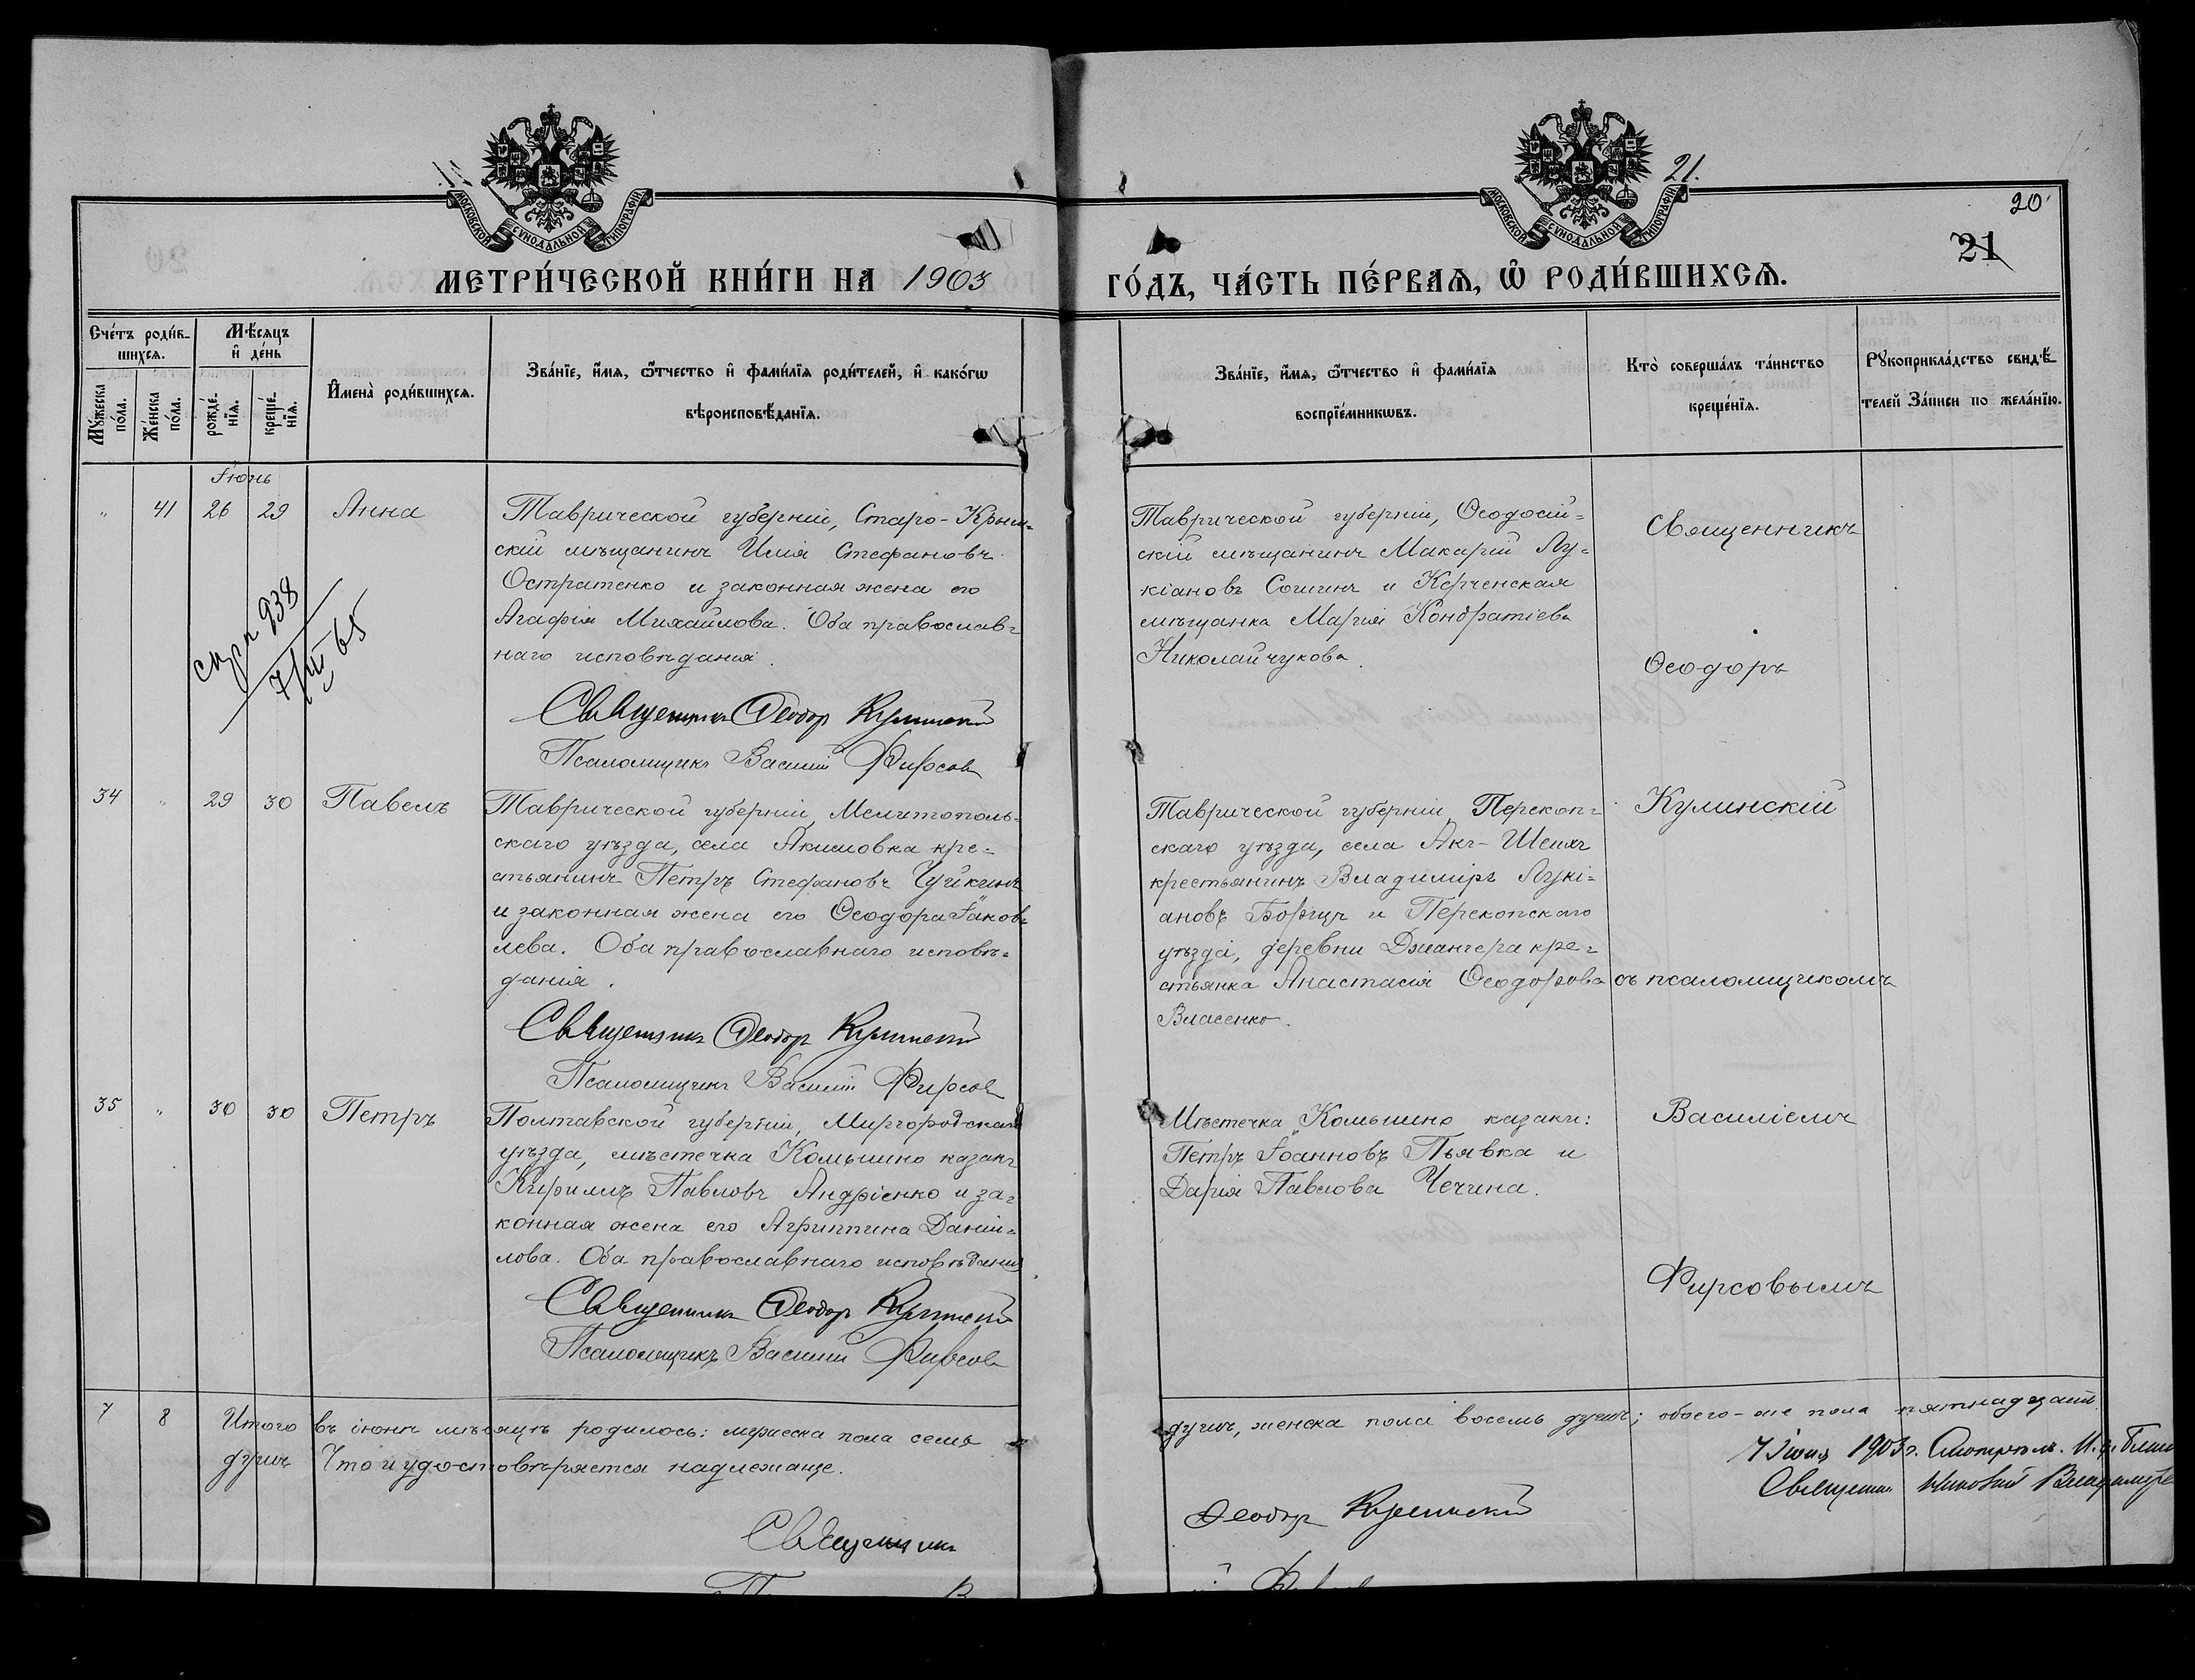 МОСКОВСКОЙ СѴНОДАЛЬНОЙ ТИПОГРАФІИ
МОСКОВСКОЙ СѴНОДАЛЬНОЙ ТИПОГРАФІИ
21.
20
21
МЕТРИ́ЧЕСКОЙ КНИ́ГИ НА 1903
ГО́ДЪ, ЧА́СТЬ ПЕ́РВАѦ, Ѽ РОДИ́ВШИХСѦ.
Сче́тъ роди́в-
шихсѧ.
Мѣ́сѧцъ
и҆ де́нь
Мꙋ́жеска
по́ла.
Же́нска
по́ла.
рожде́-
нїѧ.
креще́-
нїѧ.
И҆мена̀ роди́вшихсѧ.
Зва́нїе, и҆́мѧ, ѻ҆́тчество и҆ фами́лїѧ роди́телей, и҆ како́гѡ
вѣроисповѣ́данїѧ.
Зва́нїе, и҆́мѧ, ѻ҆́тчество и҆ фами́лїѧ
воспрїе́мникѡвъ.
Кто̀ соверша́лъ та́инство
креще́нїѧ.
Рꙋкоприкла́дство свидѣ́-
телей за́писи по жела́нїю.
Іюнь
" 41 26 29 Анна
Таврической губерніи, Старо-Крым-
скій мѣщанинъ Илія Стефановъ
Остратенко и законная жена его
Агафія Михайлова. Оба православ-
наго исповѣданія.
Священникъ Ѳеодоръ Кулинскій
Псаломщикъ Василій Фирсовъ
938
7/III 65
Таврической губерніи, Ѳеодосій-
скій мѣщанинъ Макарій Лу-
кіановъ Сошинъ и Керченская
мѣщанка Марія Кондратіева
Николайчукова.
Священникъ
Ѳеодоръ
34 " 29 30 Павелъ
Таврической губерніи, Мелитополь-
скаго уѣзда, села Акимовка кре-
стьянинъ Петръ Стефановъ Чуйкинъ
и законная жена его Ѳеодора Іаков-
лева. Оба православнаго исповѣ-
данія.
Священникъ Ѳеодоръ Кулинскій
Псаломщикъ Василій Фирсовъ
Таврической губерніи, Перекоп-
скаго уѣзда, села Акъ-Шеихъ
крестьянинъ Владиміръ Лукі-
ановъ Борщъ и Перекопскаго
уѣзда, деревни Джангера кре-
стьянка Анастасія Ѳеодорова
Власенко.
Кулинскій
съ псаломщикомъ
35 " 30 30 Петръ
Полтавской губерніи, Миргородскаго
уѣзда, мѣстечка Комышно казакъ
Кириллъ Павловъ Андріенко и за-
конная жена его Агриппина Даніи-
лова. Оба православнаго исповѣданія.
Священникъ Ѳеодоръ Кулинскій
Псаломщикъ Василій Фирсовъ
Мѣстечка Комышно казаки:
Петръ Іоанновъ Пьявка и
Дарія Павлова Чечина.
Василіемъ
Фирсовымъ
7 8 Итого въ іюнѣ мѣсяцѣ родилось: мужеска пола семь
душъ, женска пола восемь душъ; обоего-же пола пятнадцать
душъ Что и удостовѣряется надлежаще.
7 Іюля 1903 г. Смотрѣлъ. И. д. Благ.
Священникъ Владиміръ
Священникъ
Ѳеодоръ Кулинскій